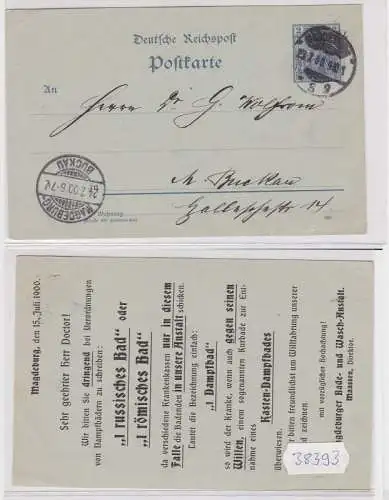 Deutsche Reichspost
Postkarte
An
Herrn Dr G. Wolfrom
M. Buckau
MAGDEBURG-
BUCKAU
Magdeburg, den 15. Juli 1900.
Sehr geehrter Herr Doctor!
Wir bitten Sie dringend bei Verordnungen
von Dampfbädern zu schreiben:
„1 russisches Bad“ oder
„1 römisches Bad“
da verschiedene Krankenkassen nur in diesem
Falle die Badenden in unsere Anstalt schicken.
Lautet die Bezeichnung einfach:
„1 Dampfbad“
so wird der Kranke, wenn auch gegen seinen
Willen, einem sogenannten Kurbade zur Ein-
nahme eines
Kasten-Dampfbades
überwiesen.
bitten freundlichst um Willfahrung unserer
und zeichnen
mit vorzüglicher Hochachtung!
Magdeburger Bade- und Wasch-Anstalt.
Maassen, Director.
38393